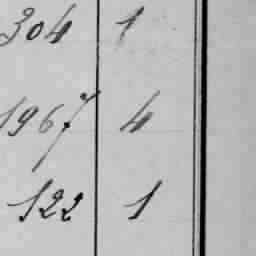 304 1
1967 4
122 1